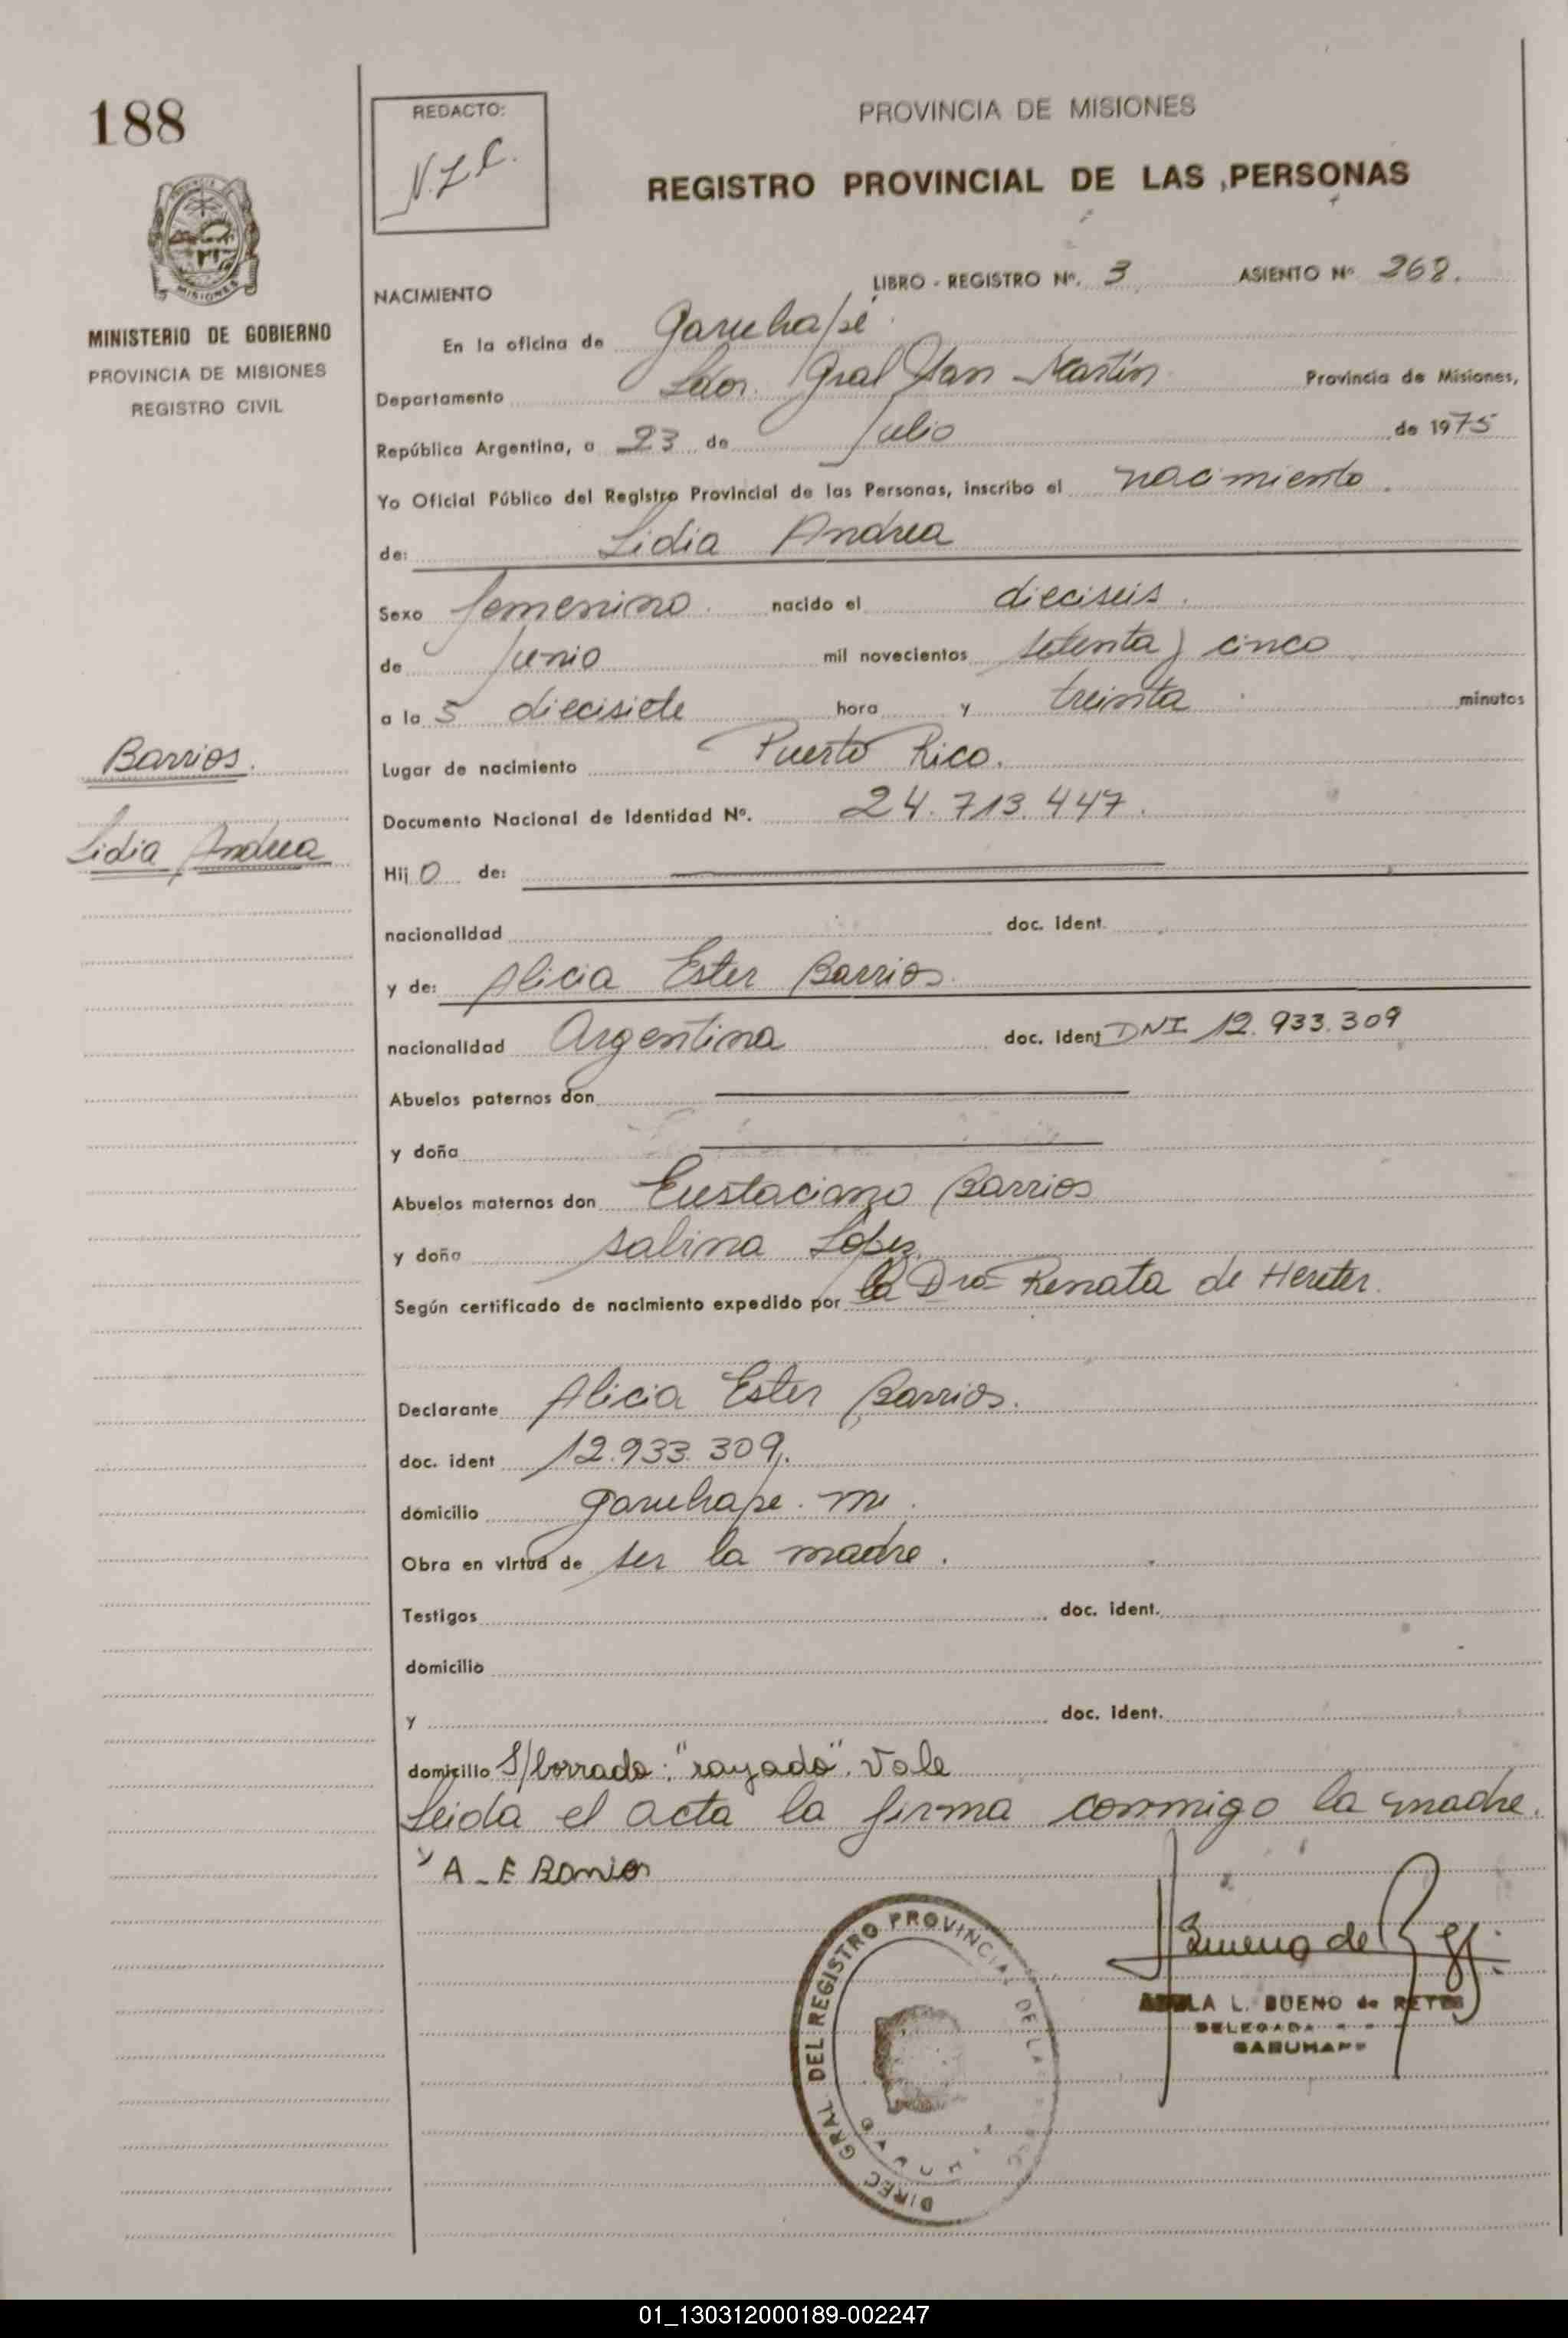 188
REDACTO:
N.L.C.
PROVINCIA DE MISIONES
REGISTRO PROVINCIAL DE LAS PERSONAS
MISIONES
MINISTERIO DE GOBIERNO
PROVINCIA DE MISIONES
REGISTRO CIVIL
NACIMIENTO
LIBRO - REGISTRO Nº. 3 ASIENTO Nº 268.
En la oficina de Garuhapé.
Departamento Ldor. Gral San Martín Provincia de Misiones,
República Argentina, a 23 de Julio de 1975
Yo Oficial Público del Registro Provincial de las Personas, inscribo el nacimiento.
de: Lidia Andrea
Sexo femenino. nacido el dieciseis.
de Junio mil novecientos setenta y cinco
a la s diecisiete hora y treinta minutos
Barrios.
Lidia Andrea
Lugar de nacimiento Puerto Rico.
Documento Nacional de Identidad Nº. 24.713.447.
Hij o de:
nacionalidad doc. ident.
y de: Alicia Ester Barrios.
nacionalidad Argentina doc. ident DNI 12.933.309
Abuelos paternos don
y doña
Abuelos maternos don Eustaciano Barrios
y doña Sabina López
Según certificado de nacimiento expedido por la Dra Renata de Hereter.
Declarante Alicia Ester Barrios.
doc. ident 12.933.309.
domicilio Garuhape. Mnes.
Obra en virtud de ser la madre.
Testigos doc. ident.
domicilio
y doc. ident.
domicilio S/borrado: "rayado". Vale
Leida el acta la firma conmigo la madre.
A_E Barrios
DIREC GRAL DEL REGISTRO PROVINCIAL DE LAS
Bueno de
L. BUENO de REYES
DELEGADA
GARUHAPE
01_130312000189-002247